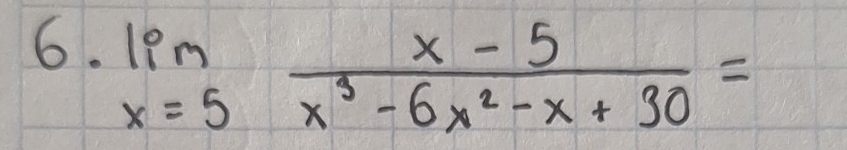 6. lim x - 5 =
x = 5 x³ - 6x² - x + 30